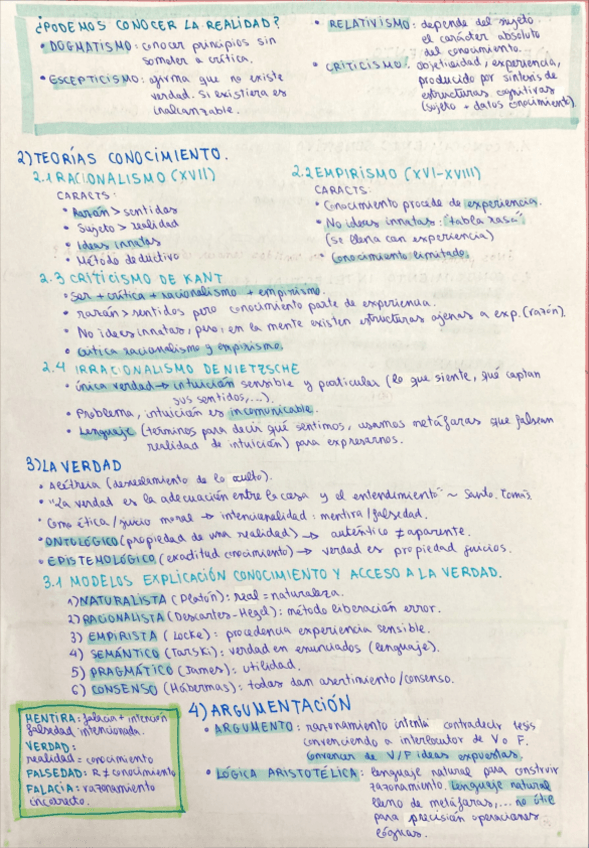 ¿PODEMOS CONOCER LA REALIDAD?
• DOGMATISMO: conocer principios sin
someter a crítica.
• ESCEPTICISMO: afirma que no existe
verdad. Si existiera es
inalcanzable.
• RELATIVISMO: depende del sujeto
el carácter absoluto
del conocimiento.
• CRITICISMO: objetividad, experiencia,
producido por síntesis de
estructuras cognitivas
(sujeto + datos conocimiento)
2) TEORÍAS CONOCIMIENTO.
2.1 RACIONALISMO (XVII)
CARACTS:
• Razón > sentidos
• Sujeto > realidad
• Ideas innatas
• Método deductivo
2.2 EMPIRISMO (XVI-XVIII)
CARACTS:
• Conocimiento procede de experiencia.
• No ideas innatas: "tabla rasa"
(se llena con experiencia)
• Conocimiento limitado.
2.3 CRITICISMO DE KANT
• Ser + crítica + racionalismo + empirismo.
• razón > sentidos pero conocimiento parte de experiencia.
• No ideas innatas, pero, en la mente existen estructuras ajenas a exp. (razón).
• Critica racionalismo y empirismo.
2.4 IRRACIONALISMO DE NIETZSCHE
• única verdad → intuición sensible y particular (lo que siente, qué captan
sus sentidos,...).
• Problema, intuición es incomunicable.
• Lenguaje (términos para decir qué sentimos, usamos metáforas que falsean
realidad de intuición) para expresarnos.
3) LA VERDAD
• Alétheia (desvelamiento de lo oculto).
• "La verdad es la adecuación entre la cosa y el entendimiento" ~ Santo. Tomás.
• Como ética / juicio moral → intencionalidad: mentira / falsedad.
• ONTOLÓGICO (propiedad de una realidad) → auténtico ≠ aparente.
• EPISTEMOLÓGICO (exactitud conocimiento) → verdad es propiedad juicios.
3.1 MODELOS EXPLICACIÓN CONOCIMIENTO Y ACCESO A LA VERDAD.
1) NATURALISTA (Platón): real = naturaleza.
2) RACIONALISTA (Descartes-Hegel): método liberación error.
3) EMPIRISTA (Locke): procedencia experiencia sensible.
4) SEMÁNTICO (Tarski): verdad en enunciados (lenguaje).
5) PRAGMÁTICO (James): utilidad.
6) CONSENSO (Hábermas): todas dan asentimiento / consenso.
MENTIRA: falacia + intención
falsedad intencionada.
VERDAD:
realidad = conocimiento
FALSEDAD: R ≠ conocimiento
FALACIA: razonamiento
incorrecto.
4) ARGUMENTACIÓN
• ARGUMENTO: razonamiento intenta contradecir tesis
convenciendo a interlocutor de V o F.
Convencer de V/F ideas expuestas.
• LÓGICA ARISTOTÉLICA: lenguaje natural para construir
razonamiento. Lenguaje natural
lleno de metáforas,... no útil
para precisión operaciones
lógicas.